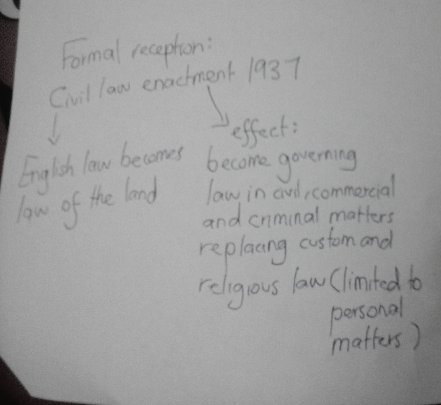 Formal reception:
Civil law enactment 1937
English law becomes
law of the land
effect:
become governing
law in civil, commercial
and criminal matters
replacing custom and
religious law (limited to
personal
matters)